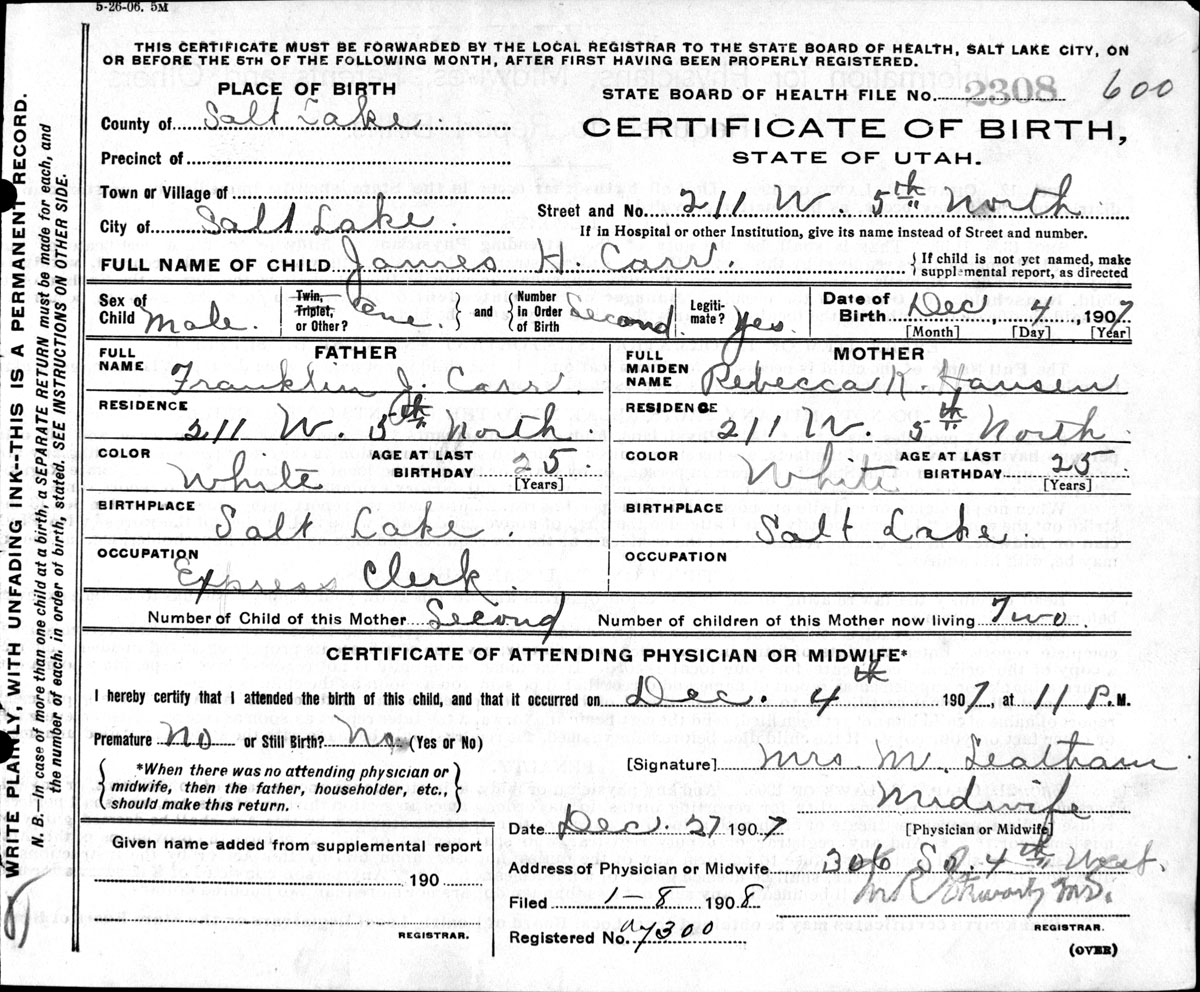 5-26-06. 5M
THIS CERTIFICATE MUST BE FORWARDED BY THE LOCAL REGISTRAR TO THE STATE BOARD OF HEALTH, SALT LAKE CITY, ON
OR BEFORE THE 5TH OF THE FOLLOWING MONTH, AFTER FIRST HAVING BEEN PROPERLY REGISTERED.
PLACE OF BIRTH
STATE BOARD OF HEALTH FILE No. 2308 600
County of Salt Lake.
CERTIFICATE OF BIRTH,
Precinct of
STATE OF UTAH.
Town or Village of
Street and No. 211 W. 5th North.
City of Salt Lake.
If in Hospital or other Institution, give its name instead of Street and number.
FULL NAME OF CHILD James H. Carr. { If child is not yet named, make
supplemental report, as directed
Sex of Child Male. Twin, Triplet, or Other? One. } and { Number in Order of Birth Second Legiti-mate? Yes. Date of Birth Dec 4, 1907
[Month] [Day] [Year]
FATHER
FULL NAME Franklin J. Carr
RESIDENCE 211 W. 5th North.
COLOR White AGE AT LAST BIRTHDAY 25 [Years]
BIRTHPLACE Salt Lake.
OCCUPATION Express Clerk.
MOTHER
FULL MAIDEN NAME Rebecca N. Hansen
RESIDENCE 211 W. 5th North.
COLOR White AGE AT LAST BIRTHDAY 25 [Years]
BIRTHPLACE Salt Lake.
OCCUPATION
Number of Child of this Mother Second Number of children of this Mother now living Two
CERTIFICATE OF ATTENDING PHYSICIAN OR MIDWIFE*
I hereby certify that I attended the birth of this child, and that it occurred on Dec. 4th 1907, at 11 P.M.
Premature No or Still Birth? No (Yes or No)
[Signature] Mrs M. Leatham
{ *When there was no attending physician or
midwife, then the father, householder, etc.,
should make this return. }
Midwife
[Physician or Midwife]
Date Dec. 27 1907
Given name added from supplemental report
190
REGISTRAR.
Address of Physician or Midwife 306 So. 4th West.
Filed 1-8. 1908. M.D.
REGISTRAR.
Registered No. 7300
(OVER)
WRITE PLAINLY, WITH UNFADING INK--THIS IS A PERMANENT RECORD.
N. B.—In case of more than one child at a birth, a SEPARATE RETURN must be made for each, and
the number of each, in order of birth, stated. SEE INSTRUCTIONS ON OTHER SIDE.